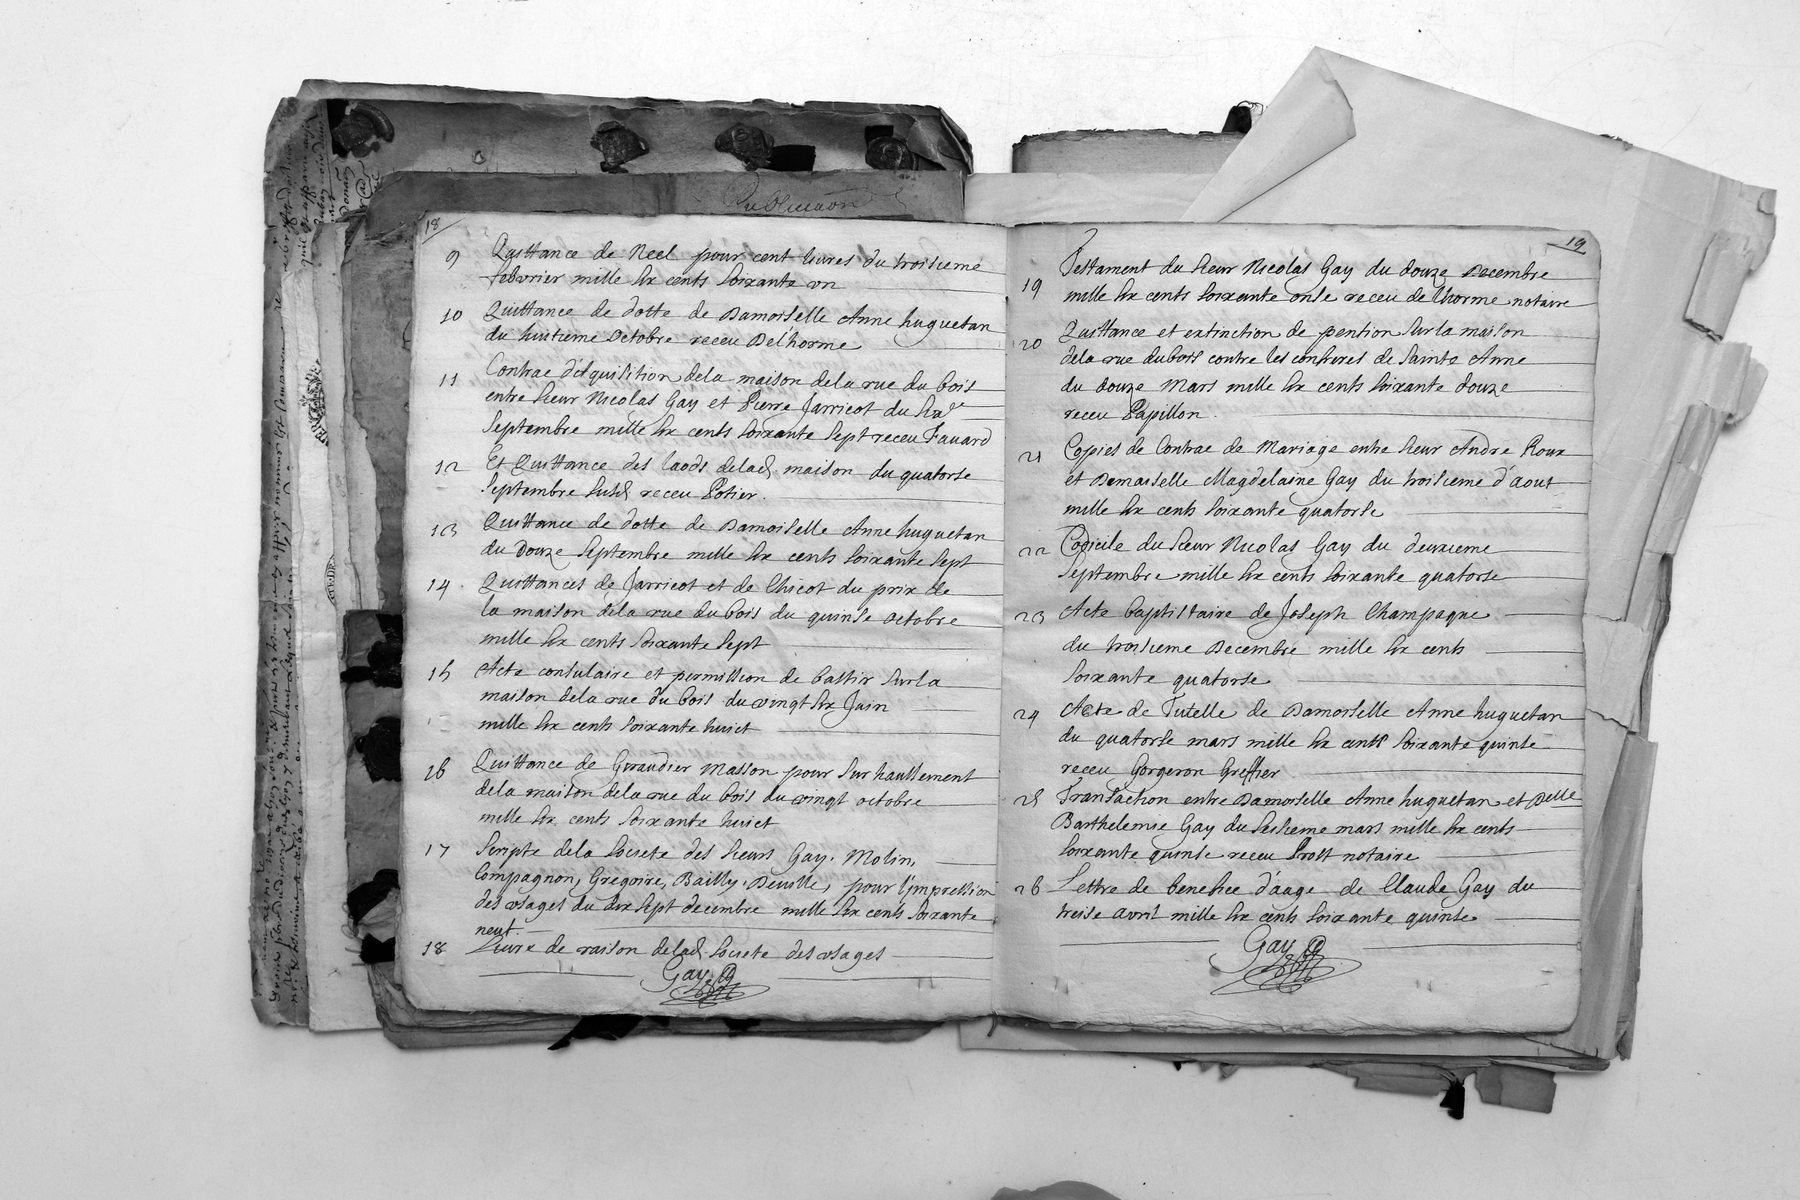 18
9 Quittance de Neel pour cent livres du troisieme
febvrier mille six cents soixante un
10 Quittance de dotte de Damoiselle Anne huguetan
du huitieme octobre receu Delhorme
11 Contrac d'acquisition dela maison dela rue du bois
entre sieur Nicolas Gay et Pierre Jarricot du
Septembre mille six cents soixante sept receu Favard
12 Et Quittance des laods delad. maison du quatorse
Septembre susd. receu Potier.
13 Quittance de dotte de Damoiselle Anne huguetan
du Douze Septembre mille six cents soixante sept
14 Quittances de Jarricot et de Chicot du prix de
la maison dela rue du bois du quinse octobre
mille six cents soixante sept
15 Acte consulaire et permission de bastir sur la
maison dela rue du bois du vingt six Juin
mille six cents soixante huict
16 Quittance de Giraudier Masson pour surhaussement
dela maison dela rue du bois du vingt octobre
mille six cents soixante huict
17 Scripte dela societe des sieurs Gay, Molin,
Compagnon, Gregoire, Bailly, Deville, pour l'impression
des usages du dix sept decembre mille six cents soixante
neuf.
18 Livre de raison delad. societe des usages
Gay
19
19 Testament du sieur Nicolas Gay du douze Decembre
mille six cents soixante onse receu de lhorme notaire
20 Quittance et extinction de pention sur la maison
dela rue dubois contre les confreres de Sainte Anne
du douze Mars mille six cents soixante douze
receu Papillon.
21 Copies de Contrac de Mariage entre sieur Andre Roux
et Demoiselle Magdelaine Gay du troisieme d'aout
mille six cents soixante quatorse
22 Codicile du sieur Nicolas Gay du deuxieme
Septembre mille six cents soixante quatorse
23 Acte baptistaire de Joseph Champagne
du troisieme Decembre mille six cents
soixante quatorse
24 Acte de Tutelle de Damoiselle Anne huguetan
du quatorse mars mille six cents soixante quinse
receu Gorgeron Greffier
25 Transaction entre Damoiselle Anne huguetan et Delle
Barthelemie Gay du seisieme mars mille six cents
soixante quinse receu Prost notaire
26 Lettre de benefice d'aage de Claude Gay du
treise avril mille six cents soixante quinse
Gay